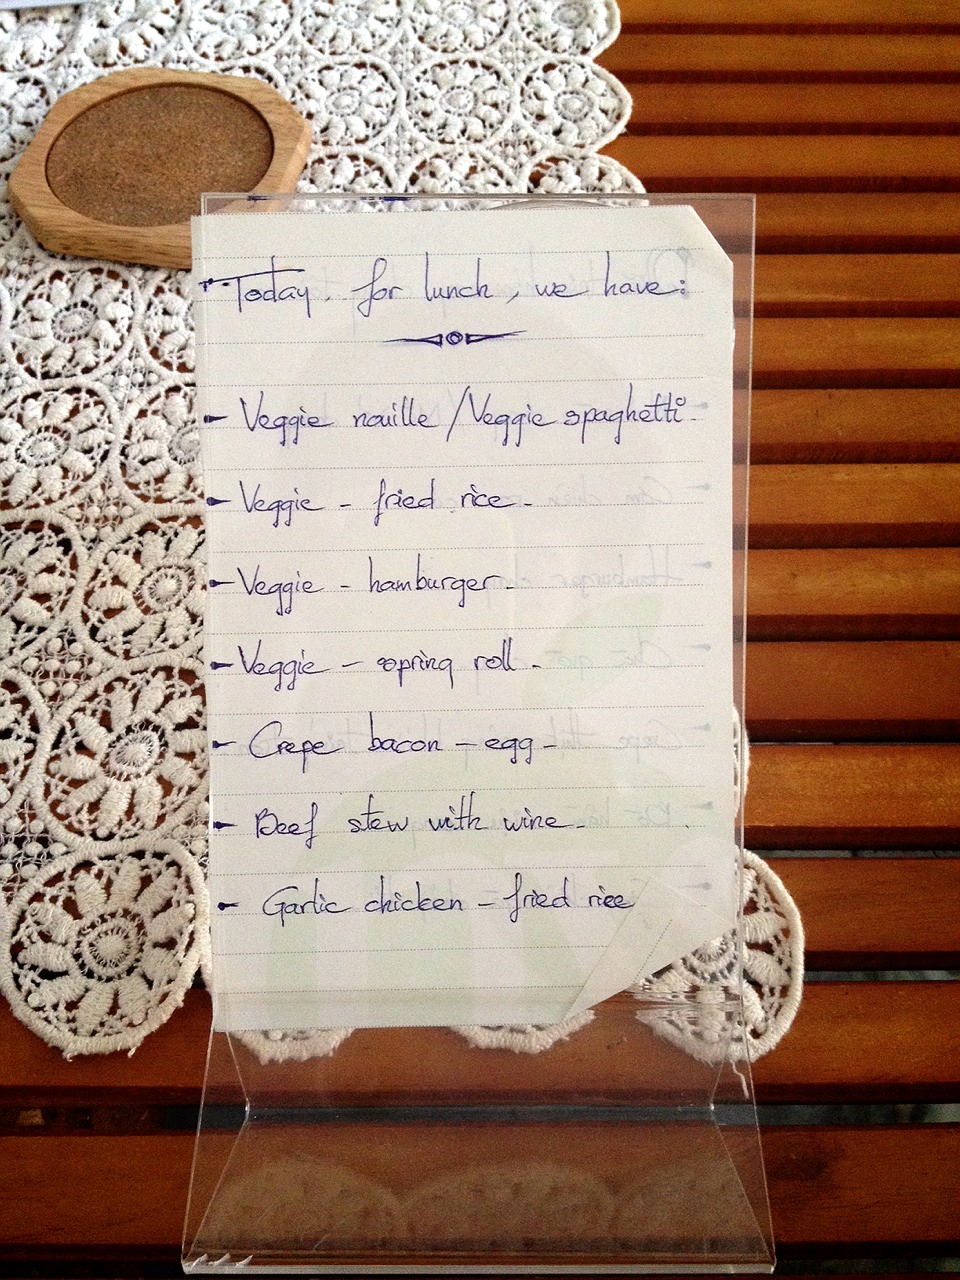 Today, for lunch, we have:
- Veggie nouille / Veggie spaghetti.
- Veggie - fried rice.
- Veggie - hamburger.
- Veggie - spring roll.
- Crepe bacon - egg -
- Beef stew with wine.
- Garlic chicken - fried rice